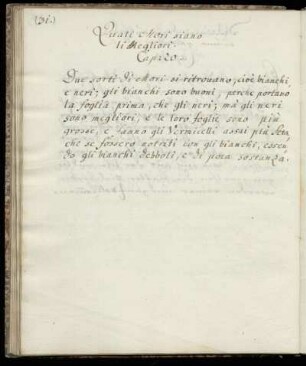 (31.)
Quali Mori siano
li Megliori.
Cap: 20.
Due sorti di Mori si ritrouano, cioè bianchi,
e neri; gli bianchi sono buoni, perche portano
la foglia prima, che gli neri; mà gli neri
sono megliori, e le loro foglie sono più
grosse, e fanno gli Vermicelli assai più Seta,
che se fossero notriti con gli bianchi, essen-
do gli bianchi debboli, e di poca sostanza.